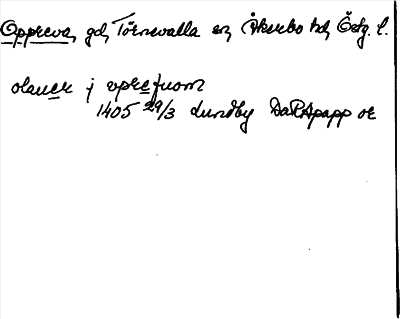 Oppreva, gd, Törnevalla sn, Åkerbo hd, Östg. l.
olauer j oprefuom
1405 29/3 Lundby DaRApapp or